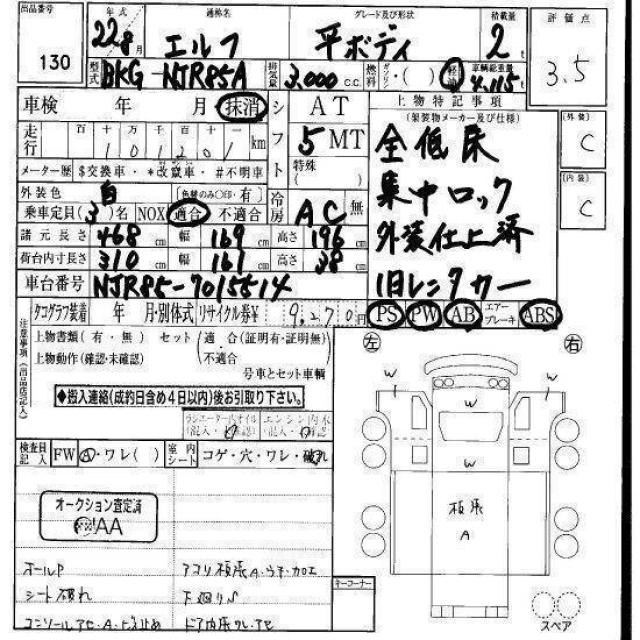 出品番号 130
年式 22年8月 通称名 エルフ グレード及び形状 平ボディ 積載量 2t 評価点 3.5
型式 BKG-NJR85A 排気量 3,000 c.c. 燃料 ガソリン・( ) 軽油 車輌総重量 4.115t
車検 年 月 抹消 シフト AT 5MT 特殊( )
上物特記事項 (架装物メーカー及び仕様)
走行 百十万千百十一 101201 km
メーター歴 $交換車・*改竄車・#不明車
外装色 白 (色替のみ○印・有)
乗車定員(3)名 NOX 適合 不適合 冷房 AC 無
諸元長さ 468cm 幅 169cm 高さ 196cm
荷台内寸長さ 310cm 幅 161cm 高さ 38cm
車台番号 NJR85-7015514
全低床
集中ロック
外装仕上済
旧レンタカー
[外装] C
[内装] C
PS PW AB エアーブレーキ ABS
タコグラフ装着 年 月・別体式 リサイクル券¥ 9,270円
注意事項(出品店記入)
上物書類(有・無) セット 適合(証明有・証明無)
上物動作(確認・未確認) ・不適合
号車とセット車輌
◆搬入連絡(成約日含め4日以内)後お引取り下さい。
検査員記入 FW A・ワレ( ) 室内シート コゲ・穴・ワレ・破れ
オークション査定済
AA
オールP アオリ板張A・ウチ・カエ
シート破れ 下廻りS
キーコーナー
左 右
W W W W W
板張
A
スペア